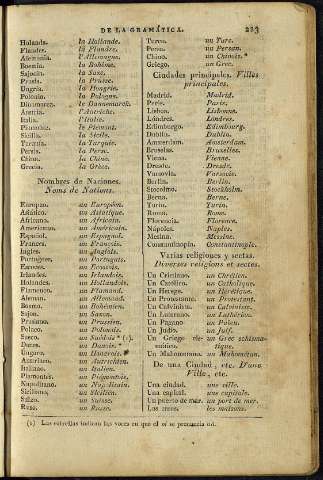 DE LA GRAMÁTICA. 223
Holanda. la Hollande.
Flandes. la Flandre.
Alemania. l'Allemagne.
Boemia. la Bohême.
Sajonia. la Saxe.
Prusia. la Prusse.
Ungría. la Hongrie.
Polonia. la Pologne.
Dinamarca. le Dannemarck.
Austria. l'Autriche.
Italia. l'Italie.
Piamonte. le Piemont.
Sicilia. la Sicile.
Turquía. la Turquie.
Persia. la Perse.
China. la Chine.
Grecia. la Grèce.
Nombres de Naciones.
Noms de Nations.
Europeo. un Européen.
Asiático. un Asiatique.
Africano. un Africain.
Americano. un Américain.
Español. un Espagnol.
Frances. un François.
Ingles. un Anglois.
Portugues. un Portugais.
Escoces. un Ecossois.
Irlandes. un Irlandois.
Holandes. un Hollandois.
Flamenco. un Flamand.
Aleman. un Allemand.
Boemo. un Bohémien.
Sajon. un Saxon.
Prusiano. un Prussien.
Polaco. un Polonois.
Sueco. un Suédois * (1).
Danes. un Danois. *
Ungaro. un Hongrois. *
Austriaco. un Autrichien.
Italiano. un Italien.
Piamontes. un Piémontois.
Napolitano. un Napolitain.
Siciliano. un Sicilien.
Suizo. un Suisse.
Ruso. un Russe.
Turco. un Turc.
Persa. un Persan.
Chino. un Chinois. *
Griego. un Grec.
Ciudades principales. Villes
principales.
Madrid. Madrid.
Paris. Paris.
Lisboa. Lisbonne.
Lóndres. Londres.
Edimburgo. Edimbourg.
Dublin. Dublin.
Amsterdam. Amsterdam.
Bruselas. Bruxelles.
Viena. Vienne.
Dresde. Dresde.
Varsovia. Varsovie.
Berlin. Berlin.
Stocolmo. Stockholm.
Berna. Berne.
Turin. Turin.
Roma. Rome.
Florencia. Florence.
Nápoles. Naples.
Mesina. Messine.
Constantinopla. Constantinople.
Varias religiones y sectas.
Diverses religions et sectes.
Un Cristiano. un Chrétien.
Un Católico. un Catholique.
Un Herege. un Hérétique.
Un Protestante. un Protestant.
Un Calvinista. un Calviniste.
Un Luterano. un Luthérien.
Un Pagano. un Païen.
Un Judío. un Juif.
Un Griego cismático. un Grec schismatique.
Un Mahometano. un Mahométan.
De una Ciudad, etc. D'une
Ville, etc.
Una ciudad. une ville.
Una capital. une capitale.
Un puerto de mar. un port de mer.
Las casas. les maisons.
(1) Las estrellas indican las voces en que el oi se pronuncia oá.